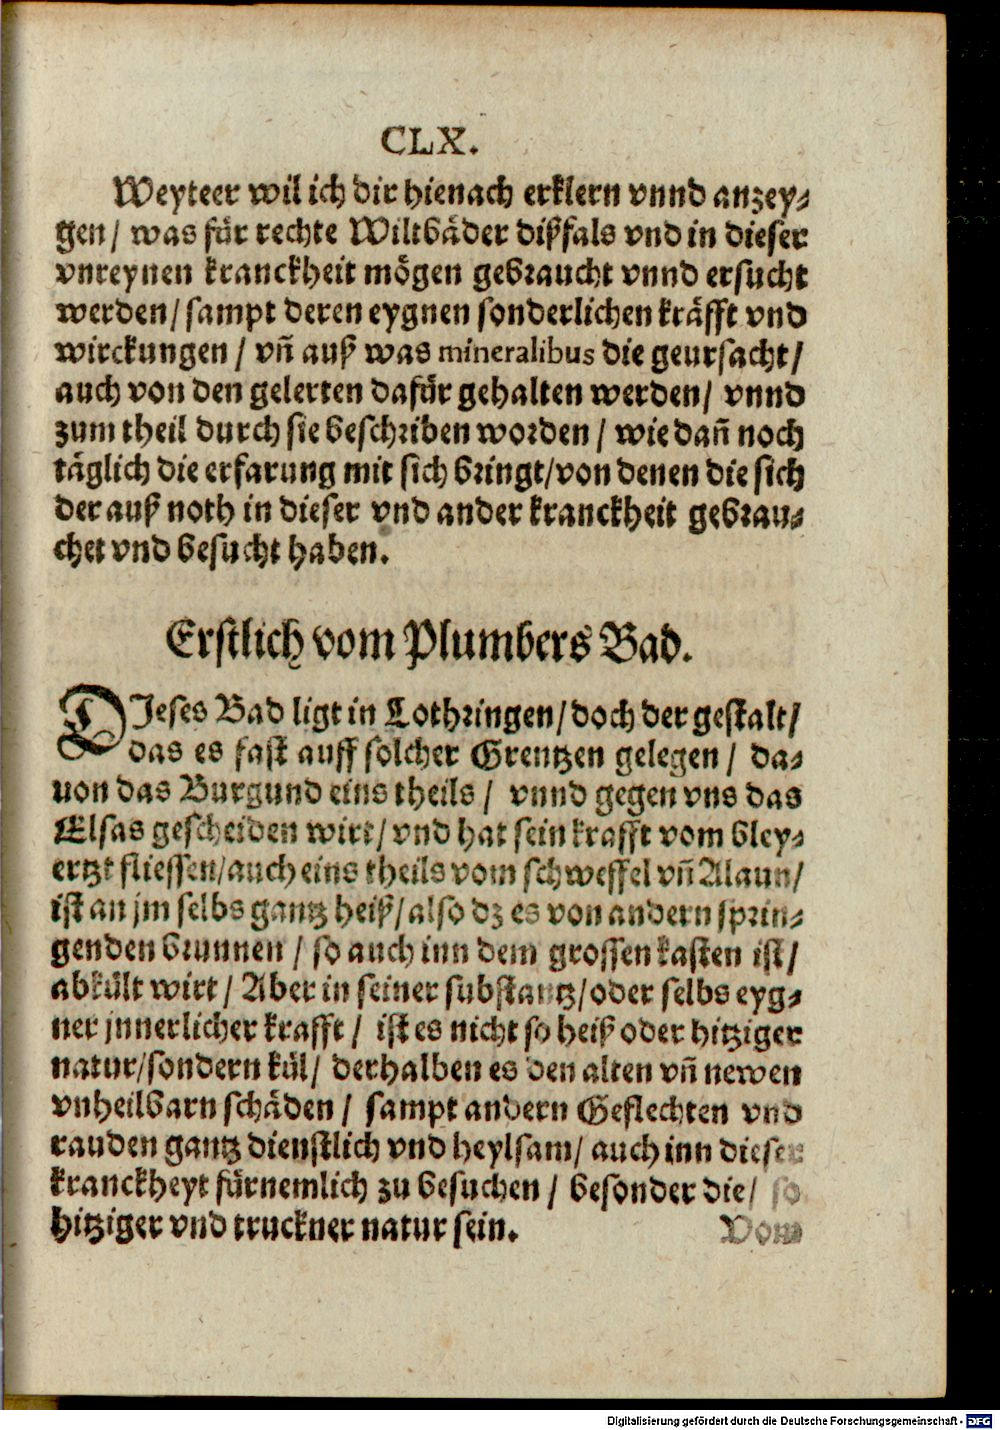 CLX.
Weyteer wil ich dir hienach erklern vnnd anzey⸗
gen / was für rechte Wiltbäder dißfals vnd in dieser
vnreynen kranckheit mögen gebraucht vnnd ersucht
werden / sampt deren eygnen sonderlichen kräfft vnd
wirckungen / vñ auß was mineralibus die geursacht /
auch von den gelerten dafür gehalten werden / vnnd
zum theil durch sie beschriben worden / wie dañ noch
täglich die erfarung mit sich bringt / von denen die sich
der auß noth in dieser vnd ander kranckheit gebrau⸗
chet vnd besucht haben.
Erstlich vom Plumbers Bad.
DJeses Bad ligt in Lothringen / doch der gestalt /
das es fast auff solcher Grentzen gelegen / da⸗
uon das Burgund eins theils / vnnd gegen vns das
Elsas gescheiden wirt / vnd hat sein krafft vom bley⸗
ertzt fliessen / auch eins theils vom schweffel vñ Alaun /
ist an jm selbs gantz heiß / also dz es von andern sprin⸗
genden brunnen / so auch inn dem grossen kasten ist /
abkült wirt / Aber in seiner substantz / oder selbs eyg⸗
ner jnnerlicher krafft / ist es nicht so heiß oder hitziger
natur / sondern kül / derhalben es den alten vñ newen
vnheilbarn schäden / sampt andern Geflechten vnd
rauden gantz dienstlich vnd heylsam / auch inn dieser
kranckheyt fürnemlich zu besuchen / besonder die / so
hitziger vnd truckner natur sein.
Vom
Digitalisierung gefördert durch die Deutsche Forschungsgemeinschaft - DFG